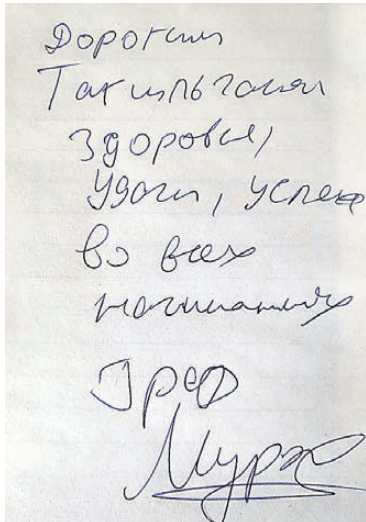 Дорогим
Тагильчанам
здоровья,
удачи, успеха
во всех
начинаниях